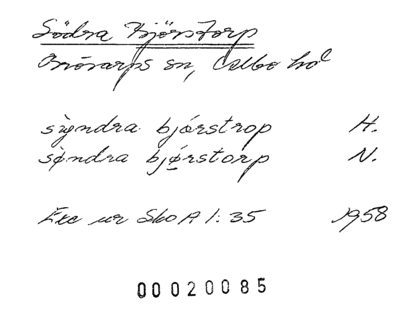 Södra Björstorp
Önnarps sn, Albo hd
syndra bjørstrop H.
søndra bjørstorp N.
Exc ur Sko A I: 35 1958
00020085